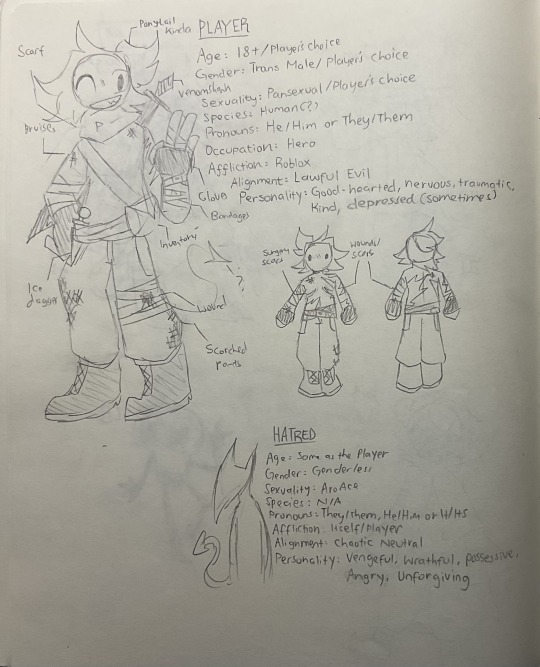 Ponytail
Kinda
PLAYER
Scarf
Age: 18+/Player's choice
Gender: Trans Male/Player's choice
Venomshank
Sexuality: Pansexual/Player's choice
Species: Human(?)
Bruises
P
Pronouns: He/Him or They/Them
Occupation: Hero
Affliction: Roblox
Alignment: Lawful Evil
Glove
Personality: Good-hearted, nervous, traumatic,
Kind, depressed (sometimes)
Bandages
Inventory
?
Ice
dagger
Surgery
scars
Wounds/
scars
Wound
Scorched
pants
HATRED
Age: Same as the Player
Gender: Genderless
Sexuality: AroAce
Species: N/A
Pronouns: They/them, He/Him or It/Its
Affliction: Itself/Player
Alignment: Chaotic Neutral
Personality: Vengeful, Wrathful, possessive,
Angry, Unforgiving